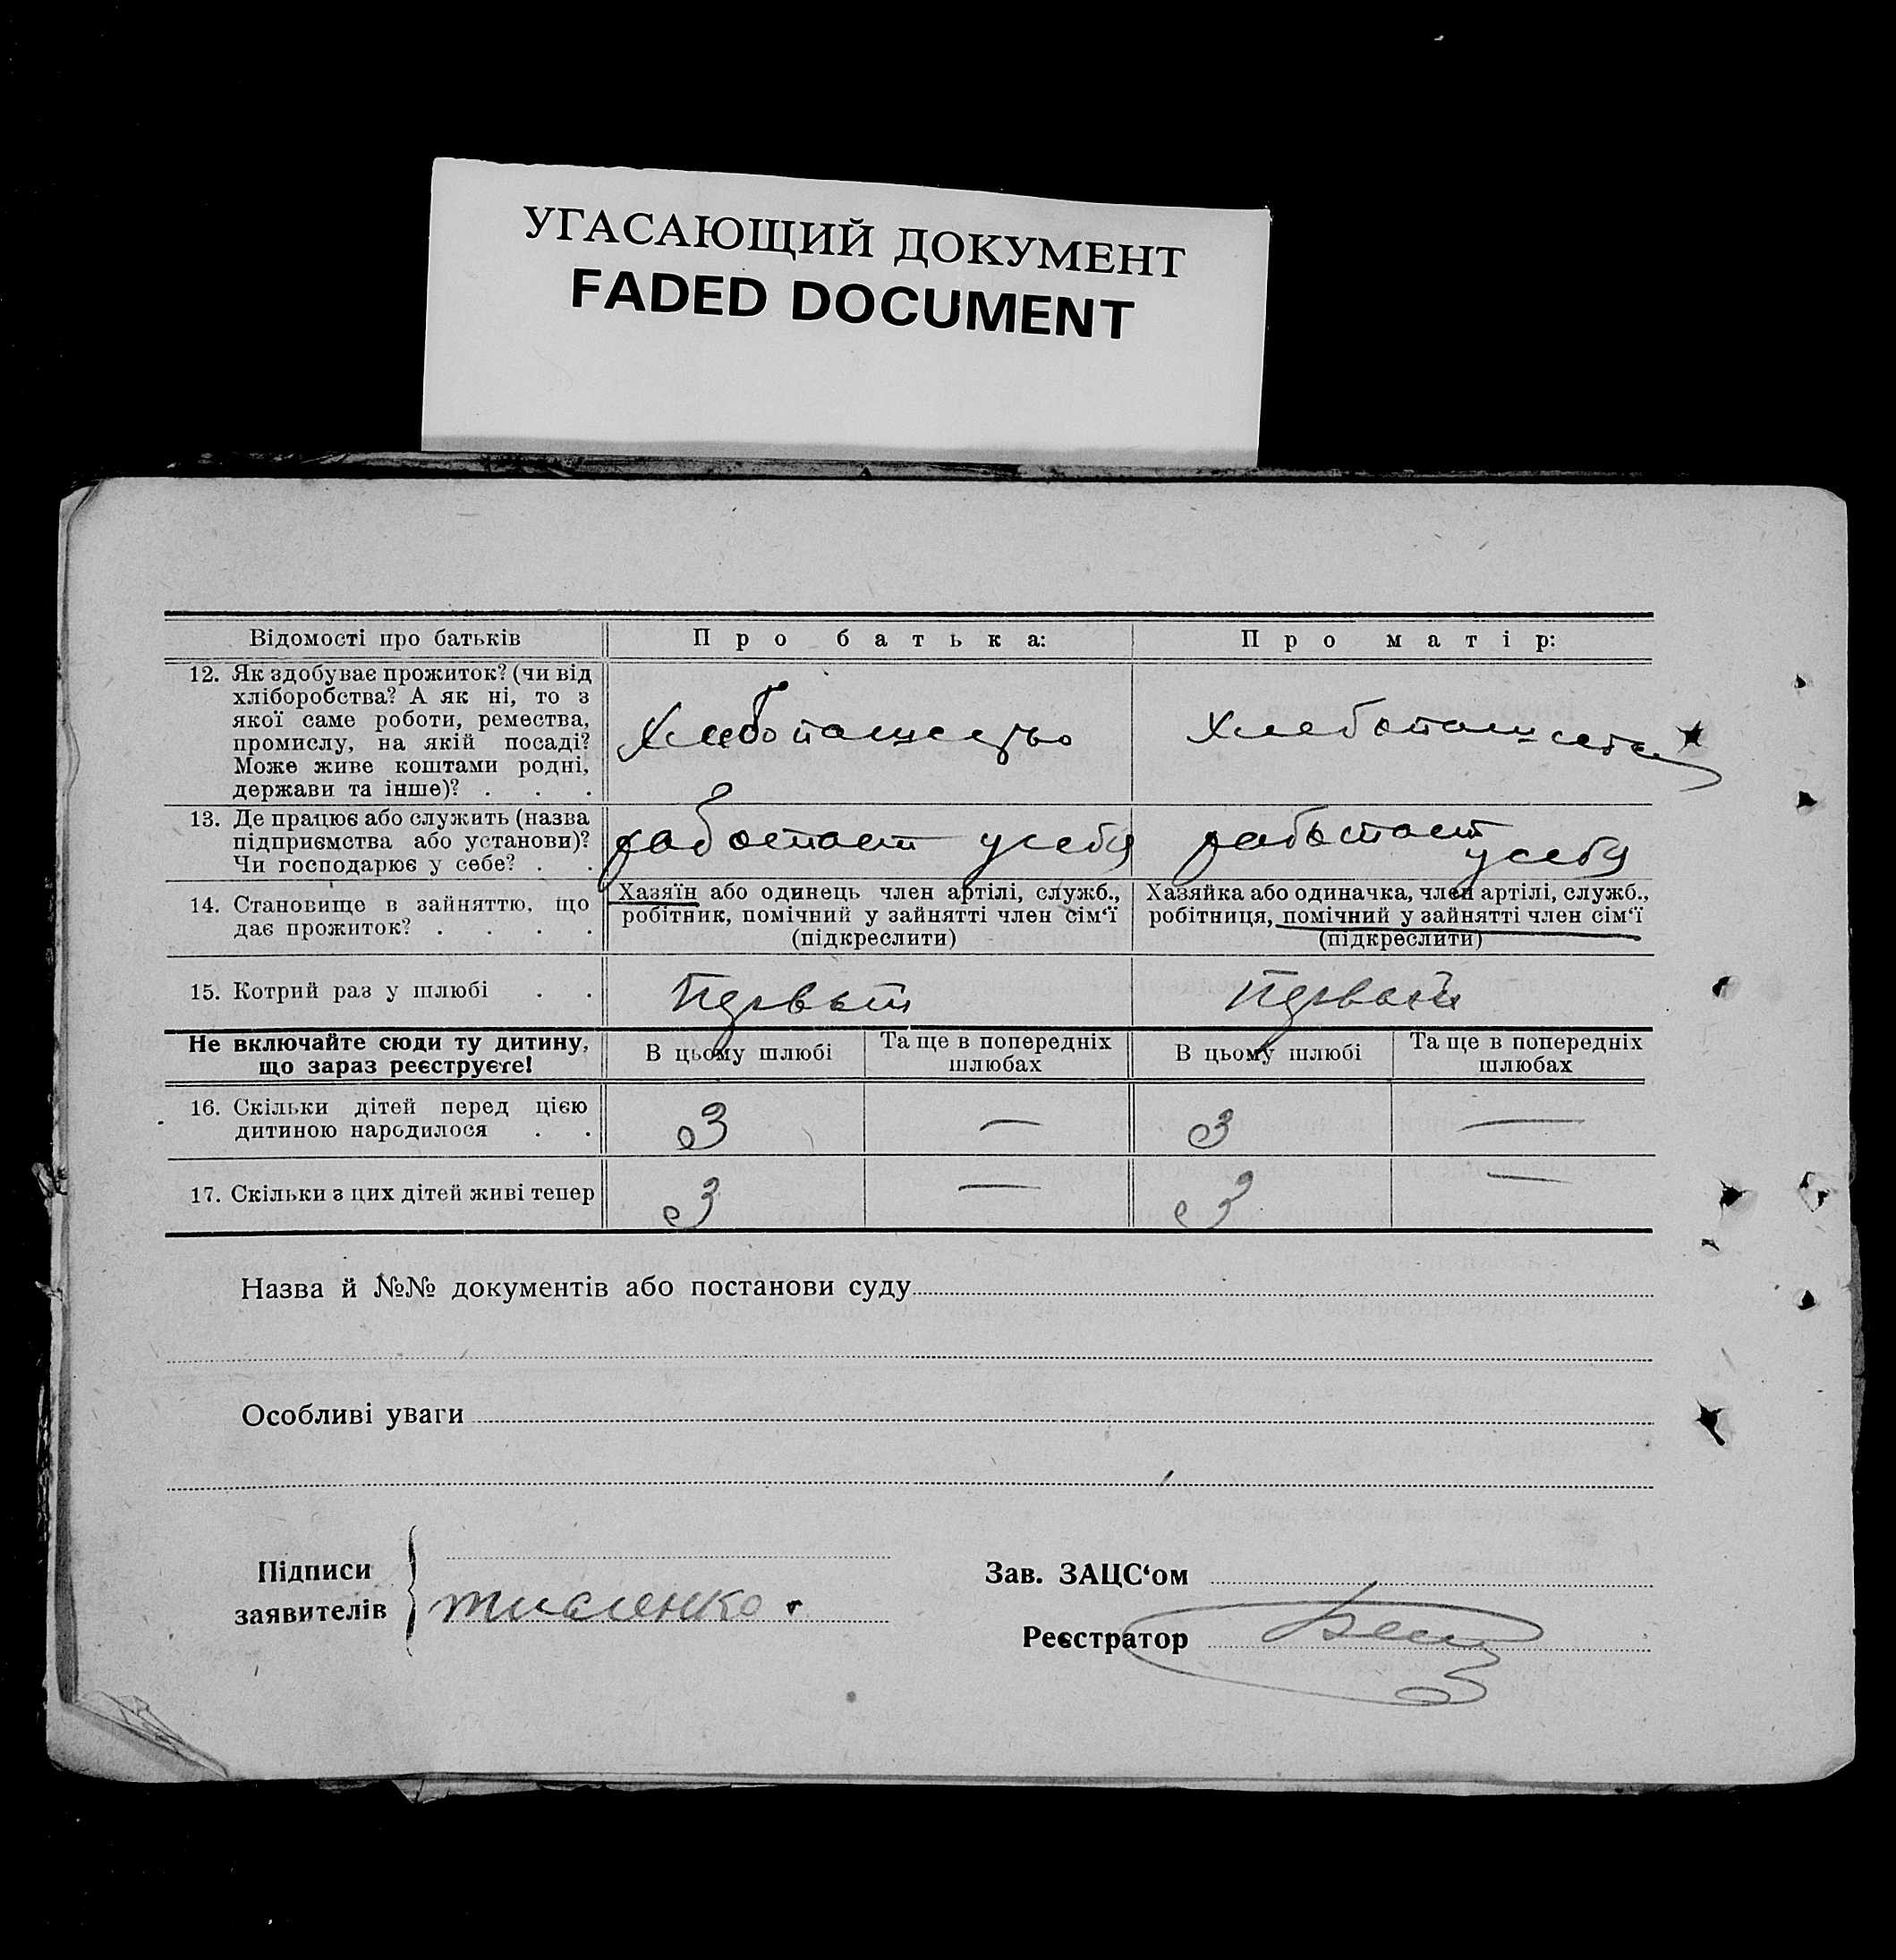 УГАСАЮЩИЙ ДОКУМЕНТ
FADED DOCUMENT
Відомості про батьків
Про батька:
Про матір:
12. Як здобуває прожиток? (чи від
хліборобства? А як ні, то з
якої саме роботи, ремества,
промислу, на якій посаді?
Може живе коштами родні,
держави та інше)? . . .
Хлебопашество
Хлебопашество
13. Де працює або служить (назва
підприємства або установи)?
Чи господарює у себе? . .
работает у себя
работает
у себя
14. Становище в зайняттю, що
дає прожиток? . . . .
Хазяїн або одинець член артілі, служб.,
робітник, помічний у зайнятті член сім‘ї
(підкреслити)
Хазяйка або одиначка, член артілі, служб.,
робітниця, помічний у зайнятті член сім‘ї
(підкреслити)
15. Котрий раз у шлюбі . .
Первый
Первый
Не включайте сюди ту дитину,
що зараз реєструєте!
В цьому шлюбі
Та ще в попередніх
шлюбах
В цьому шлюбі
Та ще в попередніх
шлюбах
16. Скільки дітей перед цією
дитиною народилося . .
3
—
3
—
17. Скільки з цих дітей живі тепер
3
—
3
—
Назва й №№ документів або постанови суду
Особливі уваги
Підписи
заявителів
Зав. ЗАЦС‘ом
Реєстратор